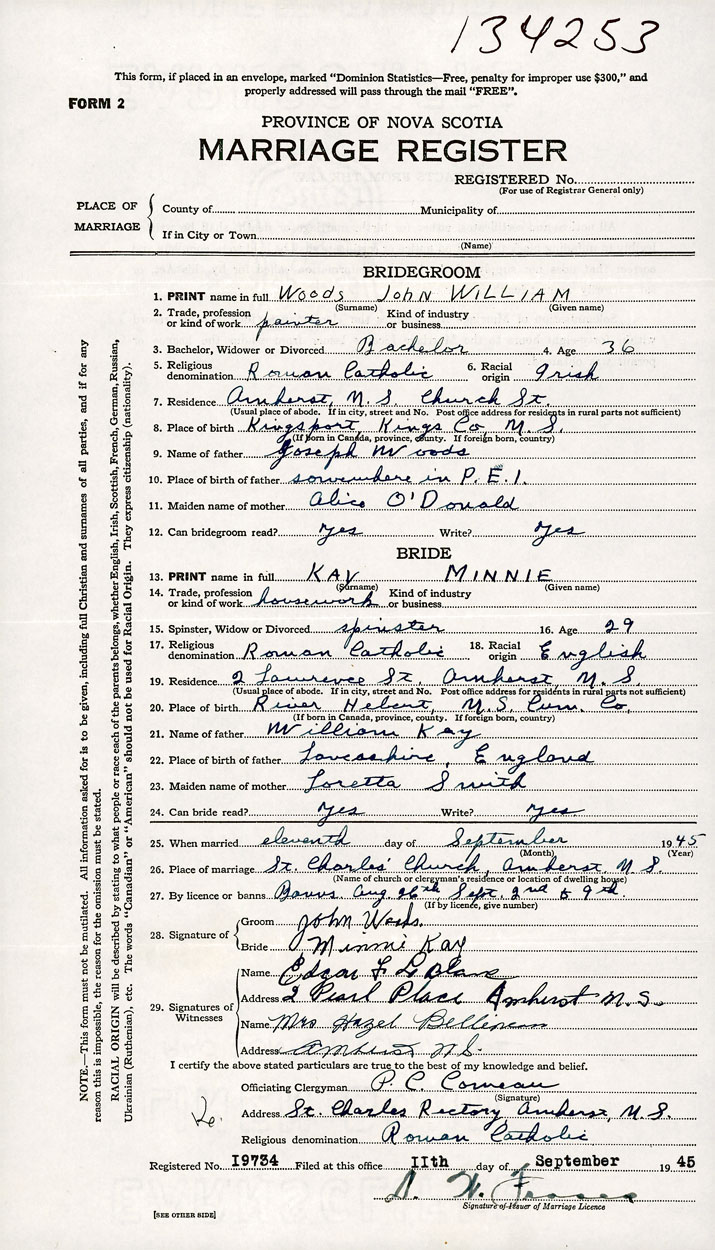 134253
This form, if placed in an envelope, marked "Dominion Statistics—Free, penalty for improper use $300," and
properly addressed will pass through the mail "FREE".
FORM 2
PROVINCE OF NOVA SCOTIA
MARRIAGE REGISTER
REGISTERED No.
(For use of Registrar General only)
PLACE OF MARRIAGE
County of Municipality of
If in City or Town
(Name)
BRIDEGROOM
1. PRINT name in full Woods John WILLIAM
(Surname) (Given name)
2. Trade, profession or kind of work painter Kind of industry or business
3. Bachelor, Widower or Divorced Bachelor 4. Age 36
5. Religious denomination Roman Catholic 6. Racial origin Irish
7. Residence Amherst, N.S. Church St.
(Usual place of abode. If in city, street and No. Post office address for residents in rural parts not sufficient)
8. Place of birth Kingsport, Kings Co, N.S.
(If born in Canada, province, county. If foreign born, country)
9. Name of father Joseph Woods
10. Place of birth of father somewhere in P.E.I.
11. Maiden name of mother Alice O'Donald
12. Can bridegroom read? Yes Write? Yes
BRIDE
13. PRINT name in full KAY MINNIE
(Surname) (Given name)
14. Trade, profession or kind of work housework Kind of industry or business
15. Spinster, Widow or Divorced spinster 16. Age 29
17. Religious denomination Roman Catholic 18. Racial origin English
19. Residence 2 Lawrence St, Amherst, N.S.
(Usual place of abode. If in city, street and No. Post office address for residents in rural parts not sufficient)
20. Place of birth River Hebert, N.S. Cum. Co.
(If born in Canada, province, county. If foreign born, country)
21. Name of father William Kay
22. Place of birth of father Lancashire, England
23. Maiden name of mother Loretta Smith
24. Can bride read? Yes Write? Yes
25. When married eleventh day of September 1945
(Month) (Year)
26. Place of marriage St. Charles' Church, Amherst, N.S.
(Name of church or clergyman's residence or location of dwelling house)
27. By licence or banns Banns Aug 26th, Sept. 2nd & 9th.
(If by licence, give number)
28. Signature of
Groom John Woods.
Bride Minnie Kay
29. Signatures of Witnesses
Name Edgar F LeBlanc
Address 2 Pearl Place Amherst N.S.
Name Mrs Hazel
Address Amherst N.S.
I certify the above stated particulars are true to the best of my knowledge and belief.
Officiating Clergyman P. C. Comeau
(Signature)
Address St. Charles Rectory Amherst, N.S.
Religious denomination Roman Catholic
Registered No. I9734 Filed at this office IIth day of September 1945
Signature of Issuer of Marriage Licence
[SEE OTHER SIDE]
NOTE.—This form must not be mutilated. All information asked for is to be given, including full Christian and surnames of all parties, and if for any
reason this is impossible, the reason for the omission must be stated.
RACIAL ORIGIN will be described by stating to what people or race each of the parents belongs, whether English, Irish, Scottish, French, German, Russian,
Ukrainian (Ruthenian), etc. The words "Canadian" or "American" should not be used for Racial Origin. They express citizenship (nationality).